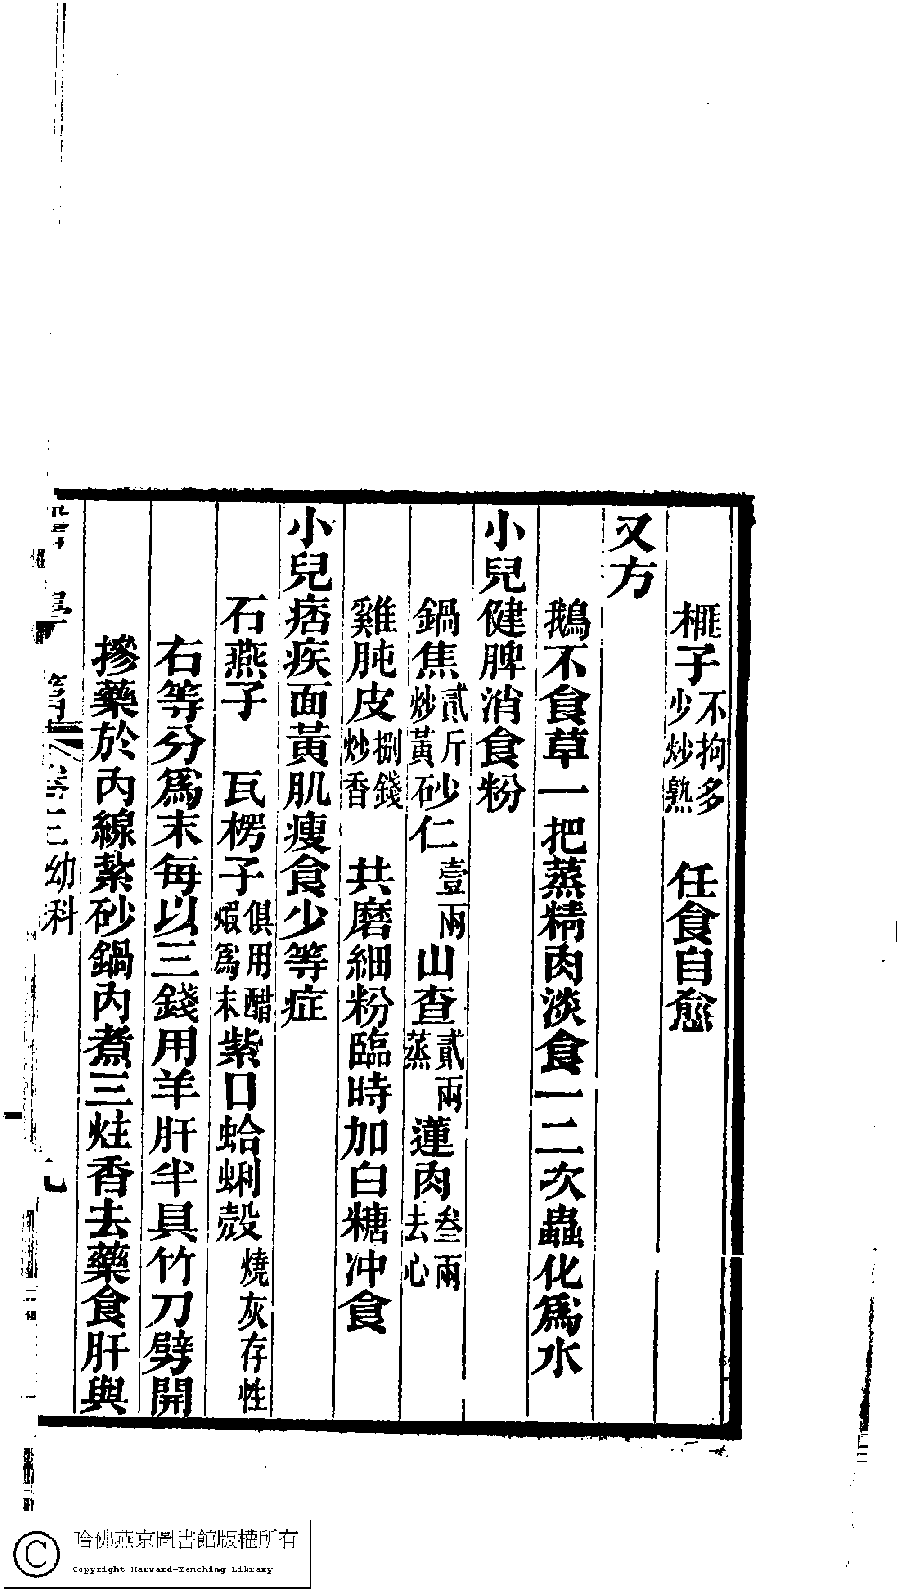 榧子不拘多少炒熟 任食自愈
又方
鵝不食草一把蒸精肉淡食一二次蟲化爲水
小兒健脾消食粉
鍋焦貳斤炒黃砂仁壹兩山查貳兩蒸蓮肉叁兩去心
雞肫皮捌錢炒香 共磨細粉臨時加白糖冲食
小兒痞疾面黃肌瘦食少等症
石燕子 瓦楞子俱用醋煆爲末紫口蛤蜊殼燒灰存性
右等分爲末每以三錢用羊肝半具竹刀劈開
摻藥於內線紮砂鍋內煮三炷香去藥食肝與
幼科
哈佛燕京圖書館版權所有
Copyright Harvard-Yenching Library